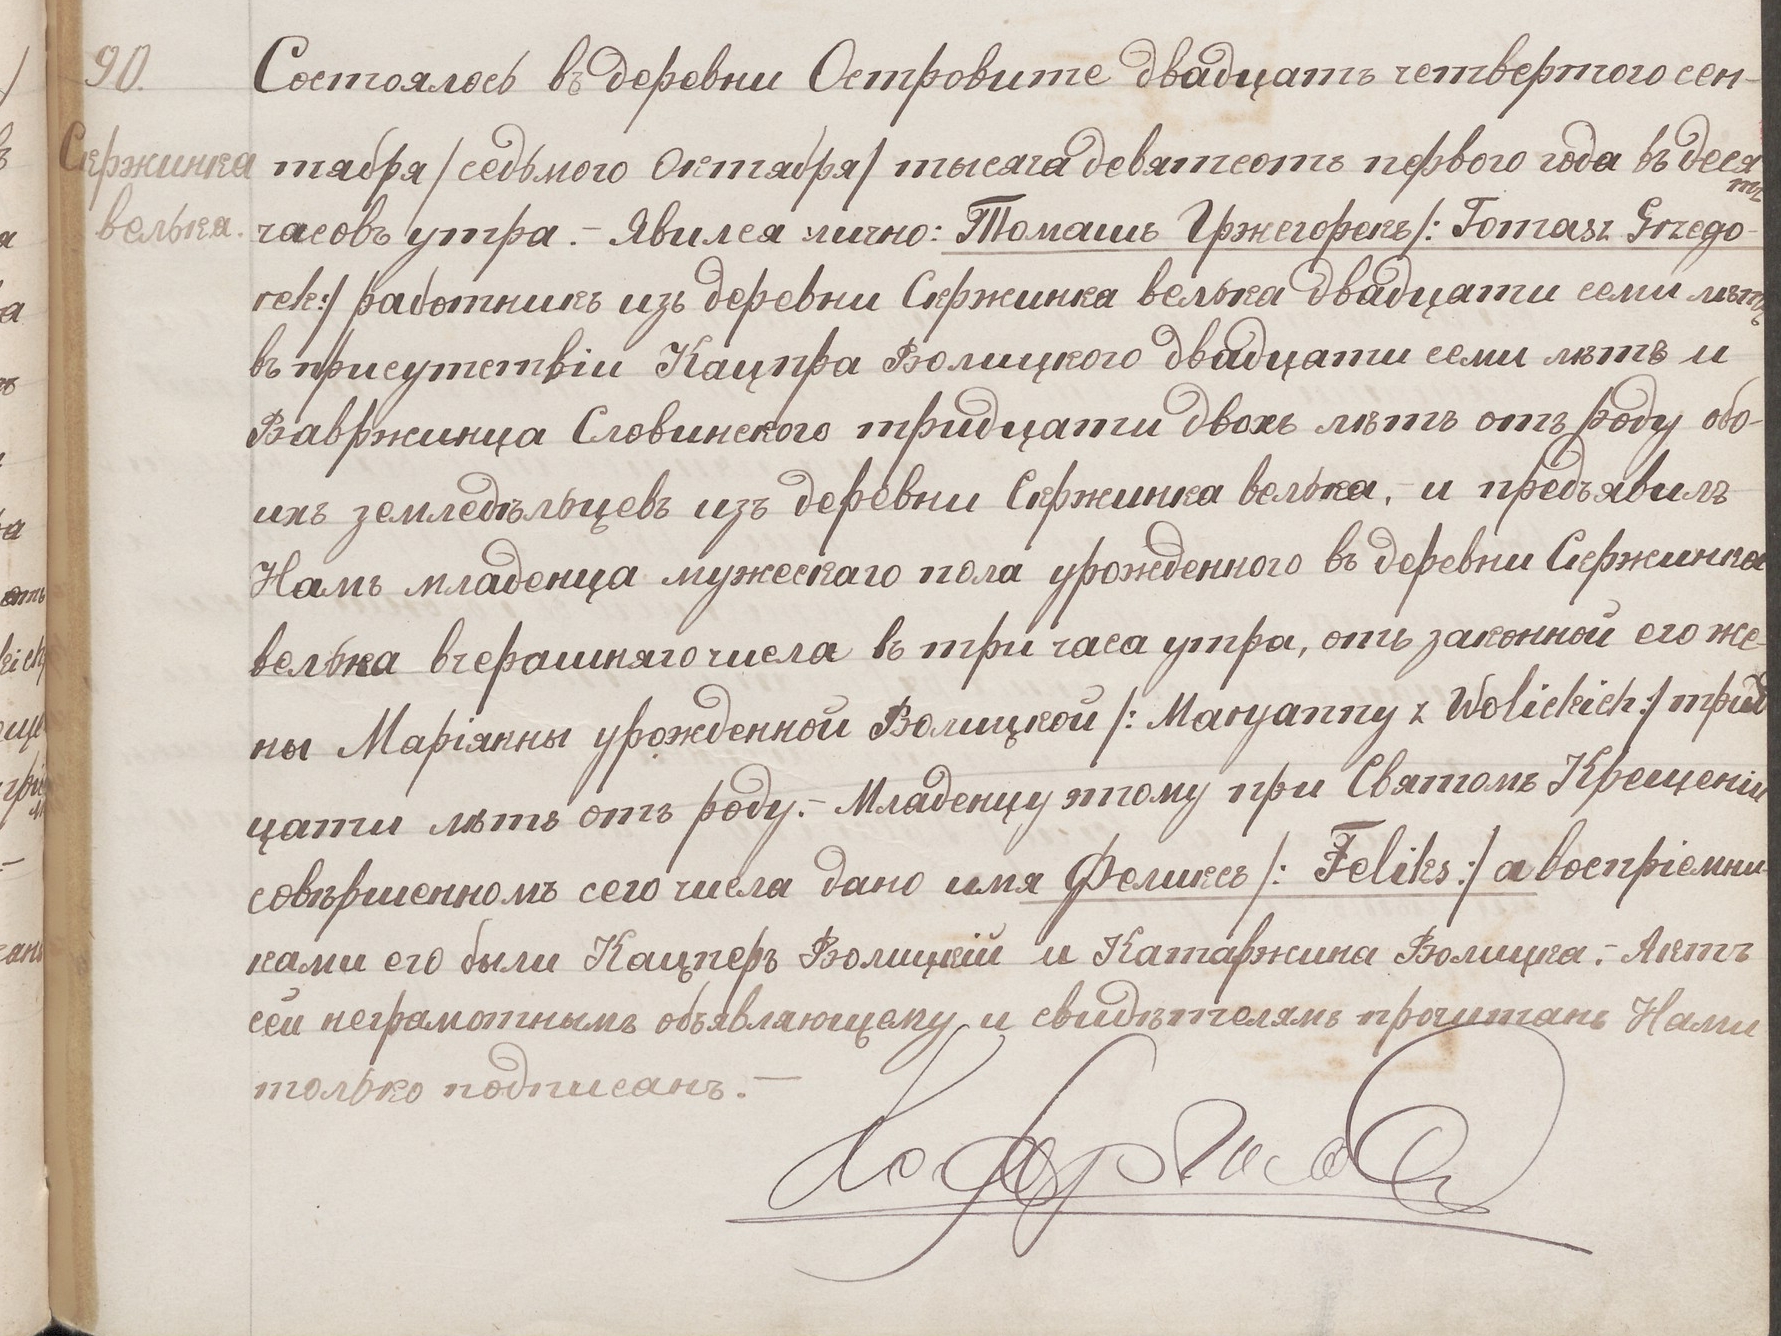 90.
Состоялось въ деревни Островите двадцать четвертого сен-
Скржинка
велька.
тября /седьмого Октября/ тысяча девятсотъ первого года въ десять
часовъ утра.- Явился лично: Томашъ Гржегорекъ /: Tomasz Grzego-
rek:/ работникъ изъ деревни Скржинка велька двадцати семи лѣтъ
въ присутствіи Кацпра Волицкого двадцати семи лѣтъ и
Вавржинца Словинского тридцати двохъ лѣтъ отъ роду обо-
ихъ земледѣльцевъ изъ деревни Скржинка велька,- и предъявилъ
Намъ младенца мужескаго пола урожденного въ деревни Скржинка
велька вчерашняго числа въ три часа утра, отъ законной его же-
ны Маріянны урожденной Волицкой /: Maryanny z Wolickich:/ трид
цати лѣтъ отъ роду.- Младенцу этому при Святомъ Крещеніи
совѣршенномъ сего числа дано имя Феликсъ /: Feliks:/ а воспріемни-
ками его были Кацперъ Волицкій и Катаржина Волицка.- Актъ
сей неграмотнымъ объявляющему и свидѣтелямъ прочитанъ Нами
только подписанъ.-